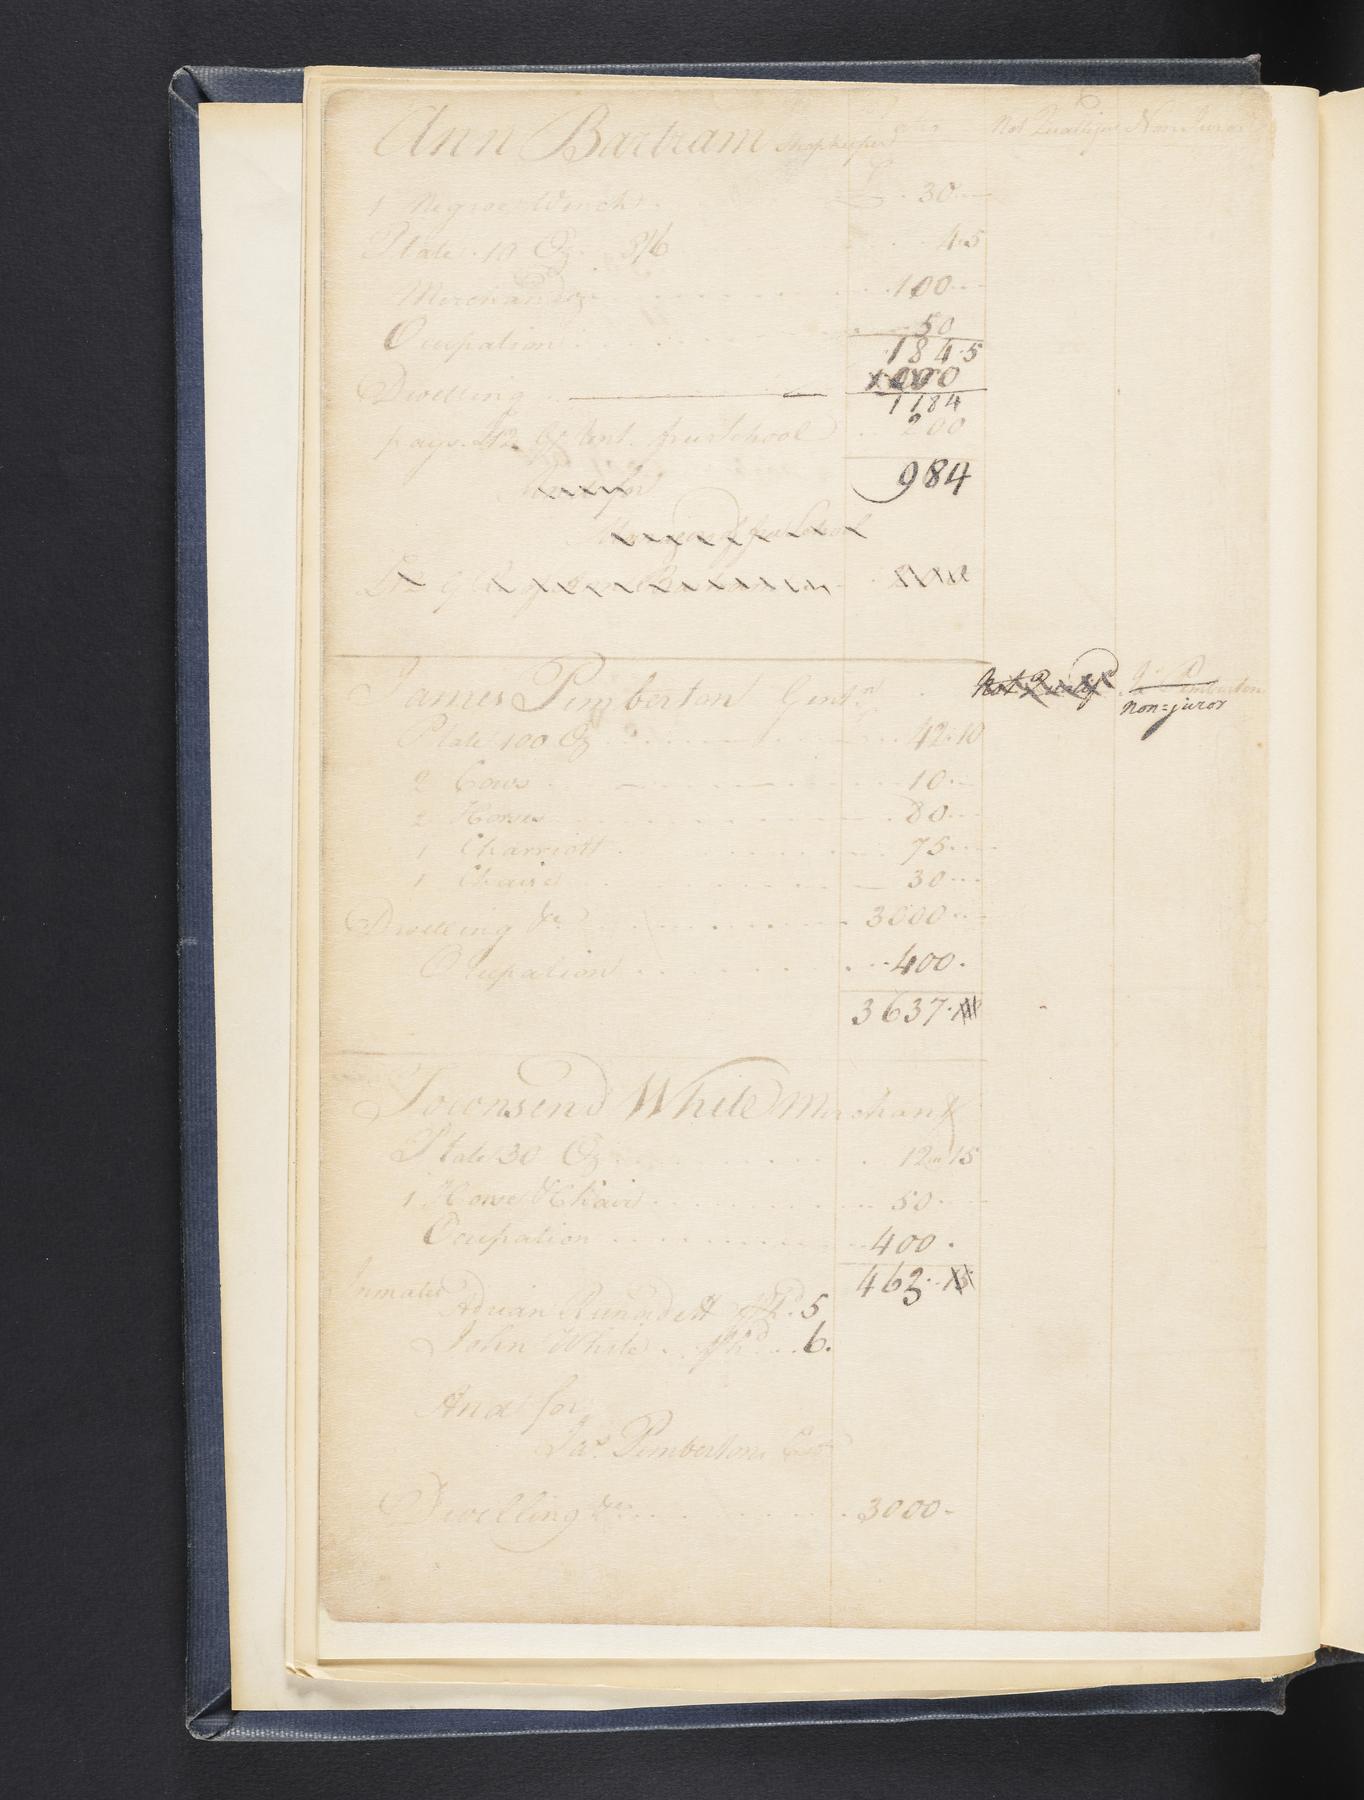 Ann Bartram Shopkeeper Not Qualifyed Non Juror
1 Negroe Wench £ 30
Plate 10 Oz. 8/6 4.5
Merchandize 100
Occupation 50
184.5
Dwelling 1000
1184
pays £12 Gd Rent freeschool 200
984
James Pemberton Gent.n Not Qualify Js Pemberton
Non=juror
Plate 100 Oz 42.10
2 Cows 10
2 Horses 80
1 Charriott 75
1 Chaise 30
Dwelling &c 3000
Occupation 400
3637.10
Townsend White Merchant
Plate 30 Oz 12 15
1 Horse & Chair 50
Ocupation 400
462. 15
Inmates
Adrian 5
John White 6.
And for
Jas. Pembertons Estt
Dwelling &c 3000